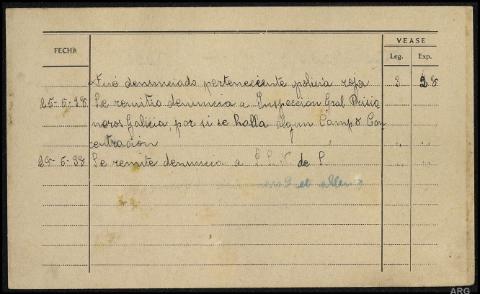 VEASE
FECHA
Leg. Exp.
Fué denunciado perteneciente policia roja 3 28
25-5-38 Se remitio denuncia a Inspeccion Gral Prisio
neros Galicia, por si se halla algun Campo Con
centracion " "
29-5-38 Se remite denuncia a S.S.N de P. " "
ARG